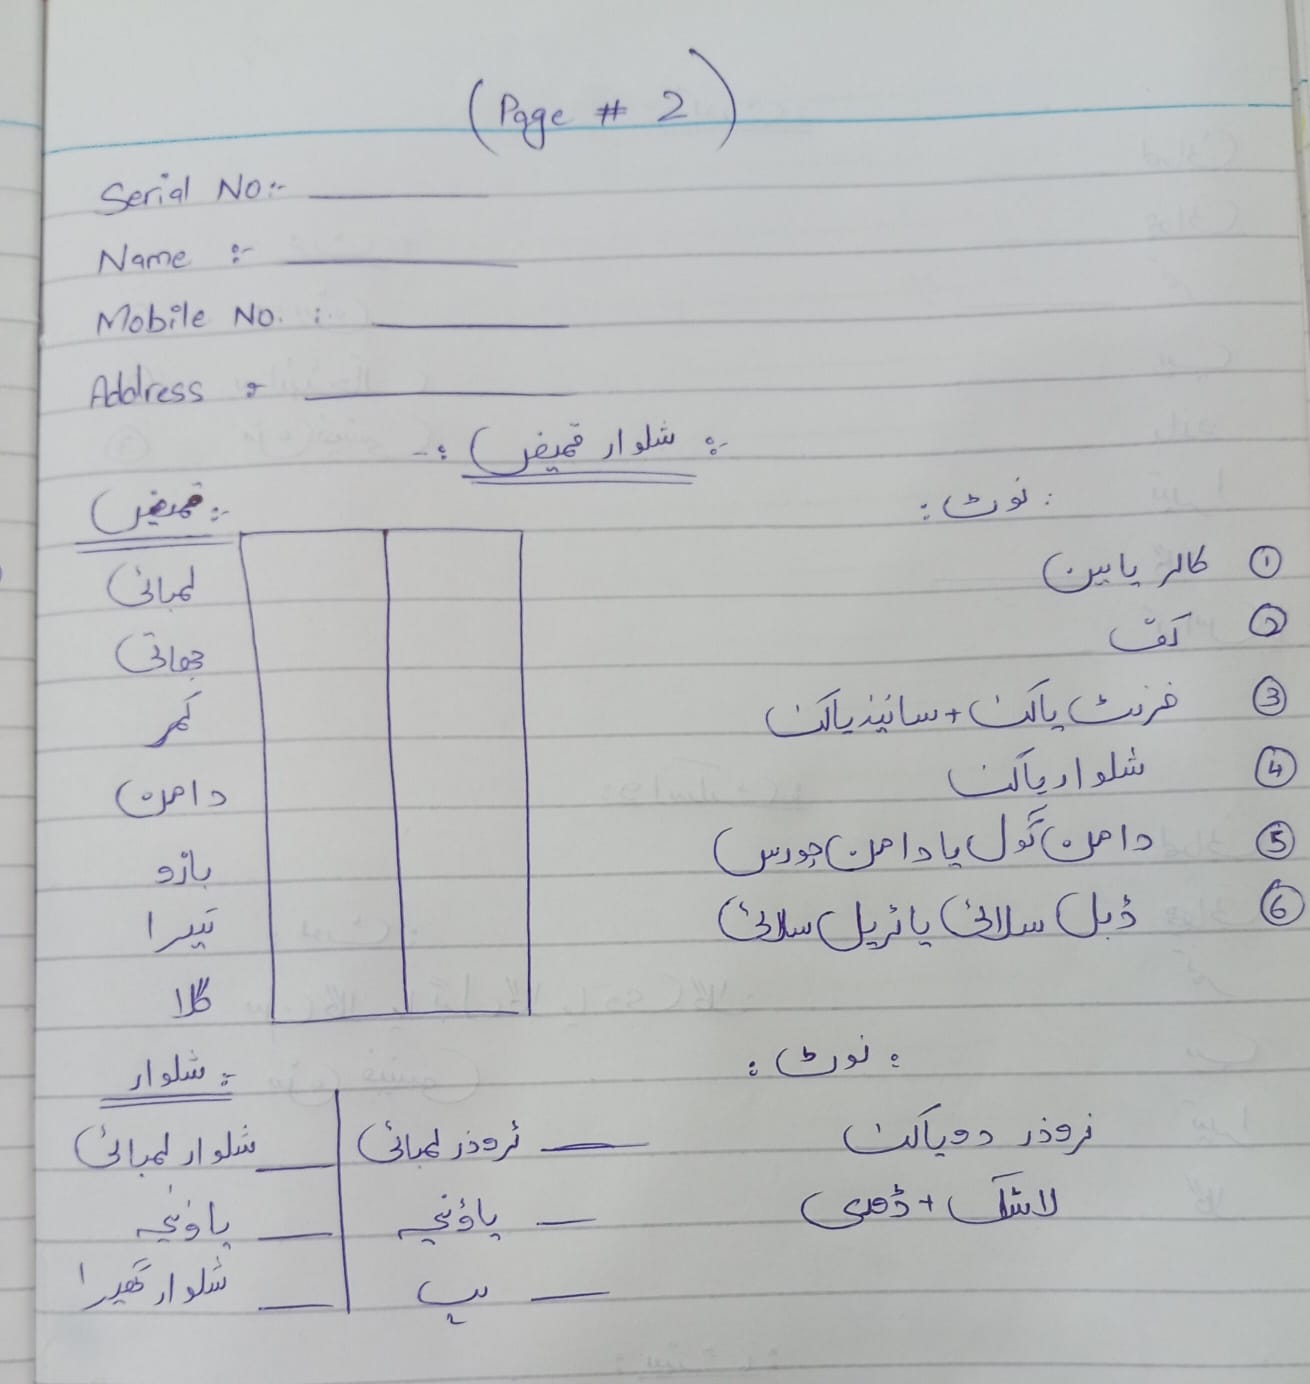 (Page # 2)
Serial No:- ________
Name :- ________
Mobile No. : ________
Address :- ________
:- شلوار قمیض :-
قمیض :-
نوٹ :
لمبائی
چھاتی
کمر
دامن
بازو
تیرا
گلا
① کالر یا بین
② کف
③ فرنٹ پاکٹ + سائیڈ پاکٹ
④ شلوار پاکٹ
⑤ دامن گول یا دامن چورس
⑥ ڈبل سلائی یا ٹرپل سلائی
شلوار :-
نوٹ :
شلوار لمبائی ____ ٹروذر لمبائی ____
پاؤنچہ ____ پاؤنچہ ____
شلوار گھیرا ____ ہپ ____
ٹروذر دو پاکٹ
لاسٹک + ڈوری